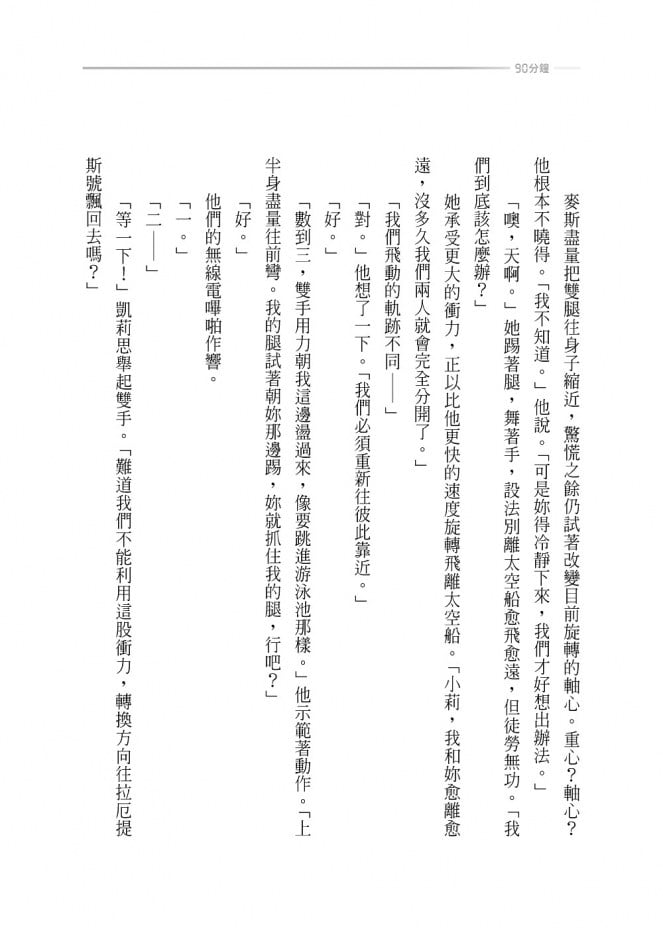 90分鐘
麥斯盡量把雙腿往身子縮近，驚慌之餘仍試著改變目前旋轉的軸心。重心？軸心？
他根本不曉得。「我不知道。」他說。「可是妳得冷靜下來，我們才好想出辦法。」
「噢，天啊。」她踢著腿，舞著手，設法別離太空船愈飛愈遠，但徒勞無功。「我
們到底該怎麼辦？」
她承受更大的衝力，正以比他更快的速度旋轉飛離太空船。「小莉，我和妳愈離愈
遠，沒多久我們兩人就會完全分開了。」
「我們飛動的軌跡不同——」
「對。」他想了一下。「我們必須重新往彼此靠近。」
「好。」
「數到三，雙手用力朝我這邊盪過來，像要跳進游泳池那樣。」他示範著動作。「上
半身盡量往前彎。我的腿試著朝妳那邊踢，妳就抓住我的腿，行吧？」
「好。」
他們的無線電嗶啪作響。
「一。」
「二——」
「等一下！」凱莉思舉起雙手。「難道我們不能利用這股衝力，轉換方向往拉厄提
斯號飄回去嗎？」